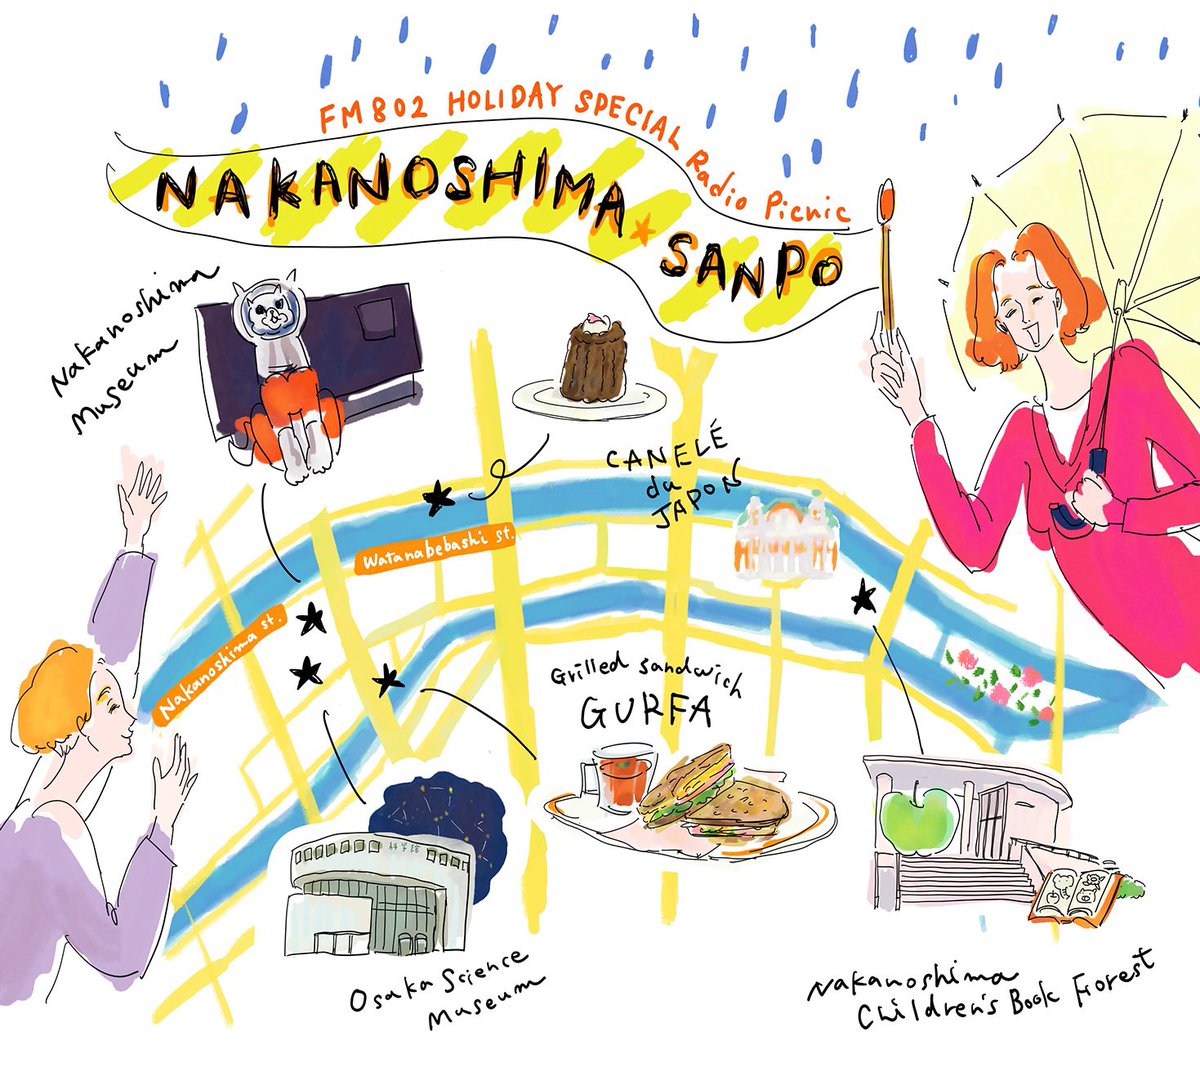 FM802 HOLIDAY SPECIAL Radio Picnic
NAKANOSHIMA
SANPO
Nakanoshima
Museum
CANELÉ
du
JAPON
Watanabebashi st.
Nakanoshima st.
Grilled sandwich
GURFA
科学館
Osaka Science
Museum
Nakanoshima
Children's Book Forest